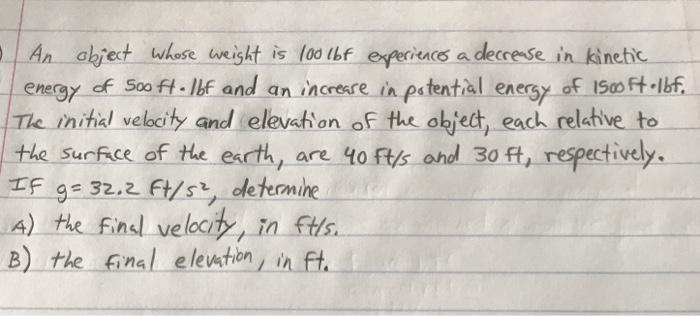 An object whose weight is 100 lbf experiences a decrease in kinetic
energy of 500 ft·lbf and an increase in potential energy of 1500 ft·lbf.
The initial velocity and elevation of the object, each relative to
the surface of the earth, are 40 ft/s and 30 ft, respectively.
If g = 32.2 ft/s², determine
A) the final velocity, in ft/s.
B) the final elevation, in ft.